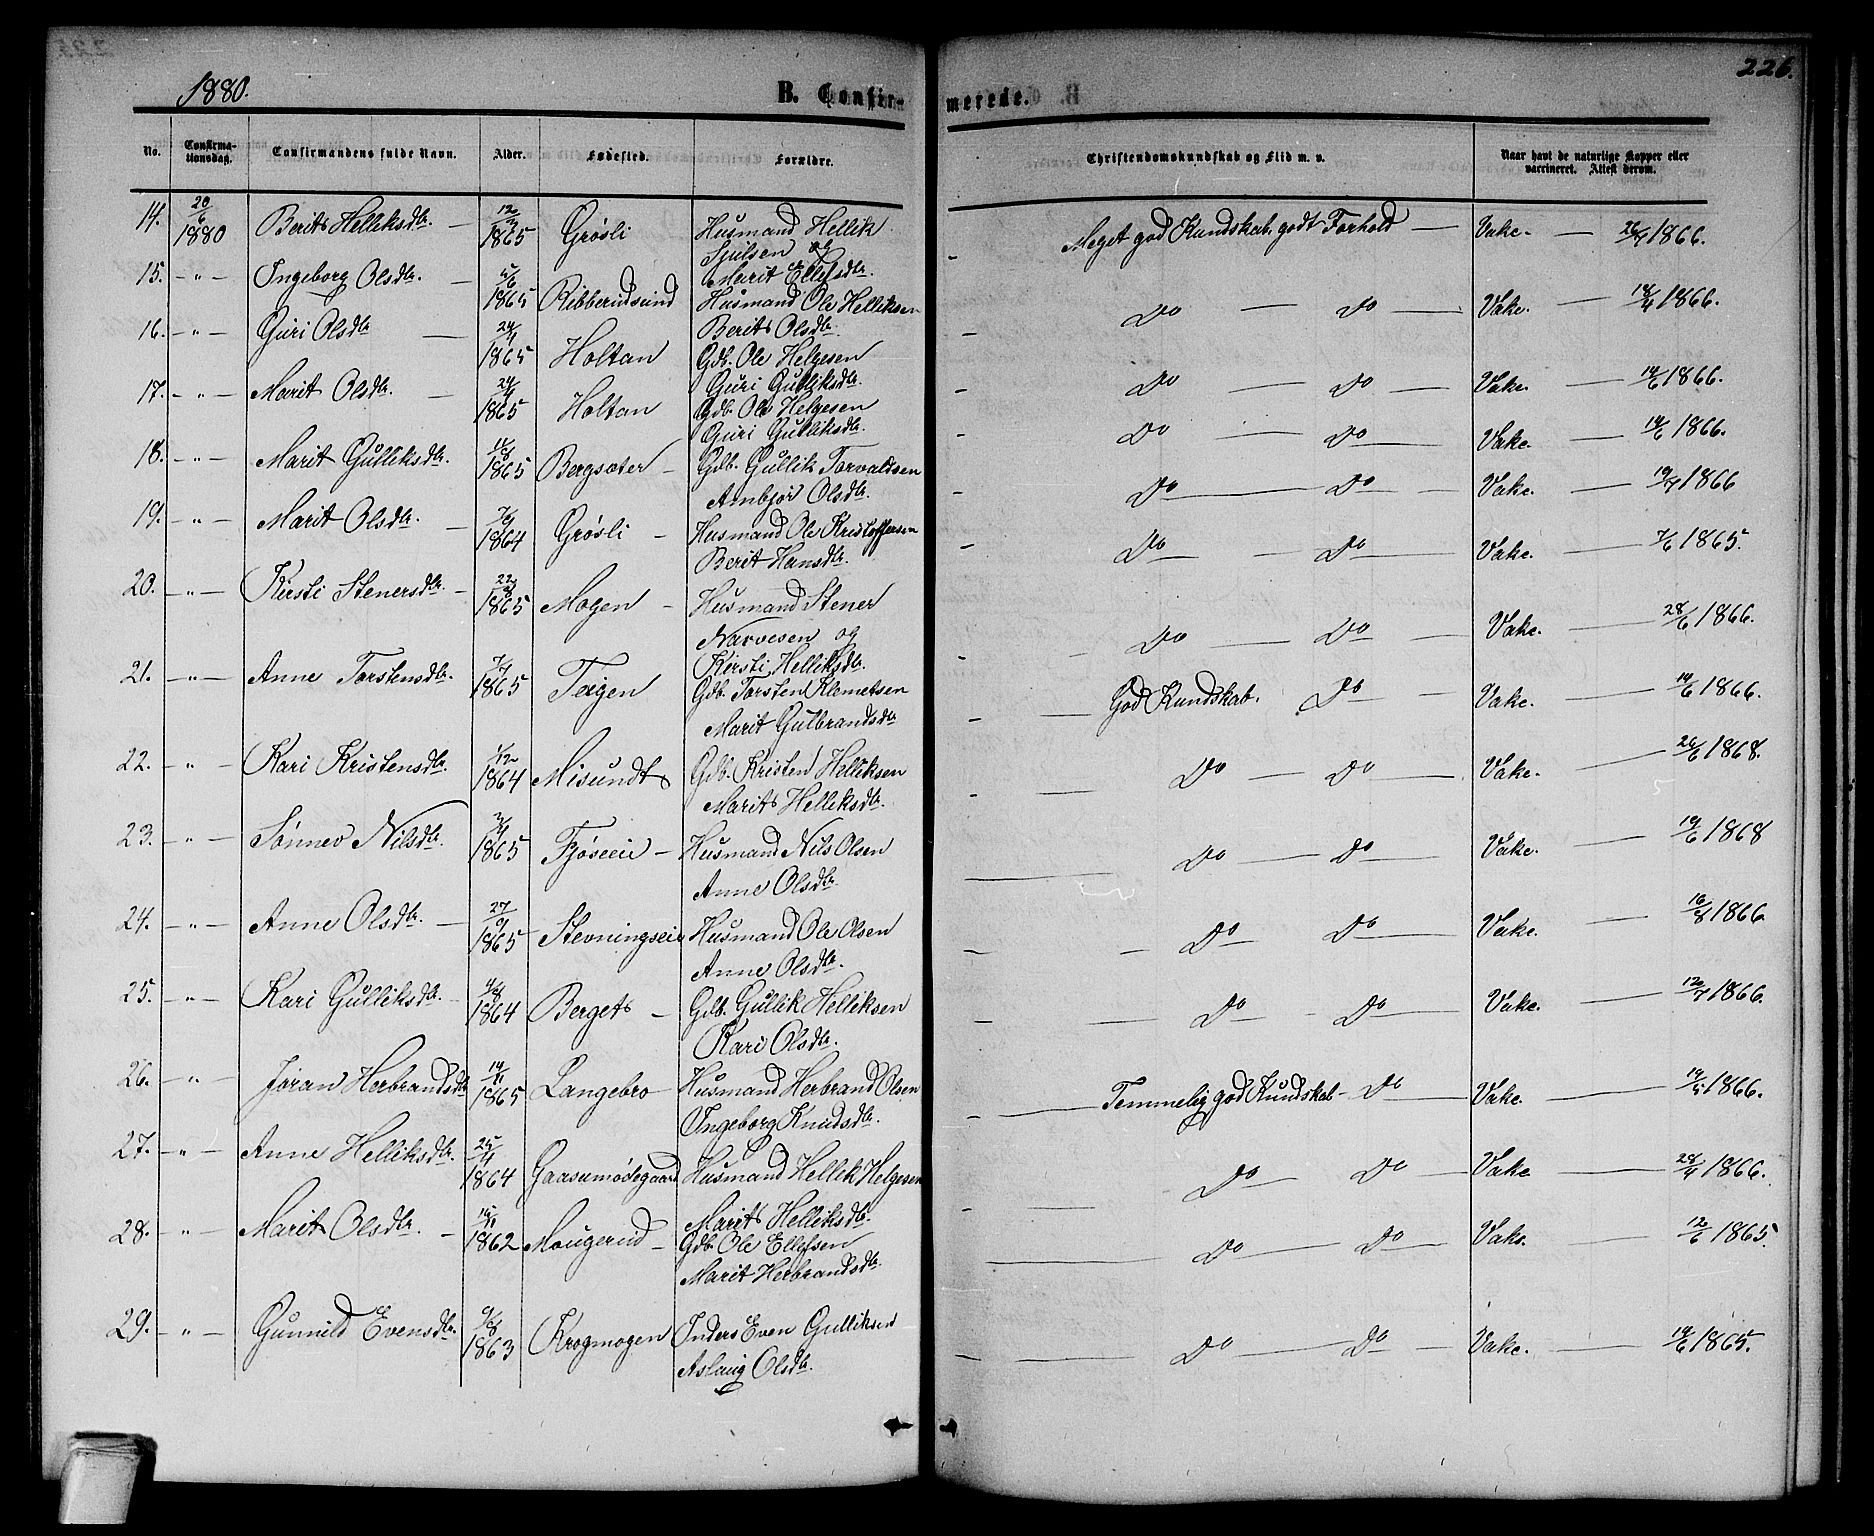 1880.
B. Confir-
merede.
226.
No.
Confirma-
tionsdag.
Confirmandens fulde Navn.
Alder.
Fødested.
Forældre.
Christendomskundskab og Flid m. v.
Naar havt de naturlige Kopper eller
vaccineret. Attest derom.
14. 20/6 1880 Berit Helliksdtr. — 1865 Grøsli Husmand Hellik Meget god Kundskab, godt Forhold — Vake. — 1866.
Sjulsen og
Marit Ellefsdtr.
15. — " — Ingeborg Olsdtr. — 5/6 1865 Ribberudseind Husmand Ole Helliksen Do — Do — Vake. — 18/6 1866.
Berit Olsdtr.
16. — " — Guri Olsdtr — 24/4 1865 Holtan Gdb. Ole Helgesen Do — Do — Vake. — 14/6 1866.
Guri Gulliksdtr.
17. — " — Marit Olsdtr. — 24/4 1865 Holtan Gdb. Ole Helgesen Do — Do — Vake. — 14/6 1866.
Guri Gulliksdtr.
18. — " — Marit Gulliksdtr. 1865 Bergsæter — Gdb. Gullik Torvaldsen Do — Do — Vake. 1866
Ambjør Olsdtr.
19. — " — Marit Olsdtr. — 1864 Grøsli — Husmand Ole Kristoffersen Do — Do — Vake. — 7/6 1865.
Berit Hansdtr.
20. — " — Kirsti Stenersdtr. — 1865 Mogen — Husmand Stener Do — Do — Vake. 28/6 1866.
Narvesen og
Kirsti Helliksdtr.
21. — " — Anne Torstensdtr. 1865 Teigen Gdb. Torsten Klemetsen — God Kundskab. Do — Vake. — 14/6 1866.
Marit Gulbrandsdtr
22. — " — Kari Kristensdtr. 1/12 1864 Misundt Gdb. Kristen Helliksen Do — Do — Vake. — 26/6 1868.
Marit Helliksdtr.
5
23. — " — Sønnev Nilsdtr. 1865 Fjøseie — Husmand Nils Olsen Do — Do — Vake. — 1868
Anne Olsdtr.
24. — " — Anne Olsdtr. — 1865 Stevningseie Husmand Ole Olsen — Do — Do — Vake. — 1866
Anne Olsdtr.
25. — " — Kari Gulliksdtr. 1864 Berget — Gdb. Gullik Helliksen — Do — Do — Vake. — 12/7 1866.
Kari Olsdtr.
26. — " — Jøran Herbrandsdtr 1865 Langebro — Husmand Herbrand Olsen — Temmelig god Kundskab — Do — Vake. — 1866.
Ingeborg Knudsdtr.
27. — " — Anne Helliksdtr. 1864 Gaasemødegaard Husmand Hellik Helgesen Do — Do — Vake — 1866.
Marit Helliksdtr.
28. — " — Marit Olsdtr. — 1862 Mougerud — Gdb. Ole Ellefsen — Do — Do — Vake. — 12/6 1865.
Marit Herbrandsdtr.
29. — " — Gunnild Evensdtr. 9/8 1863 Krogmogen Inders. Even Gulliksen — Do — Do — Vake. — 14/6 1865.
Aslaug Olsdtr.